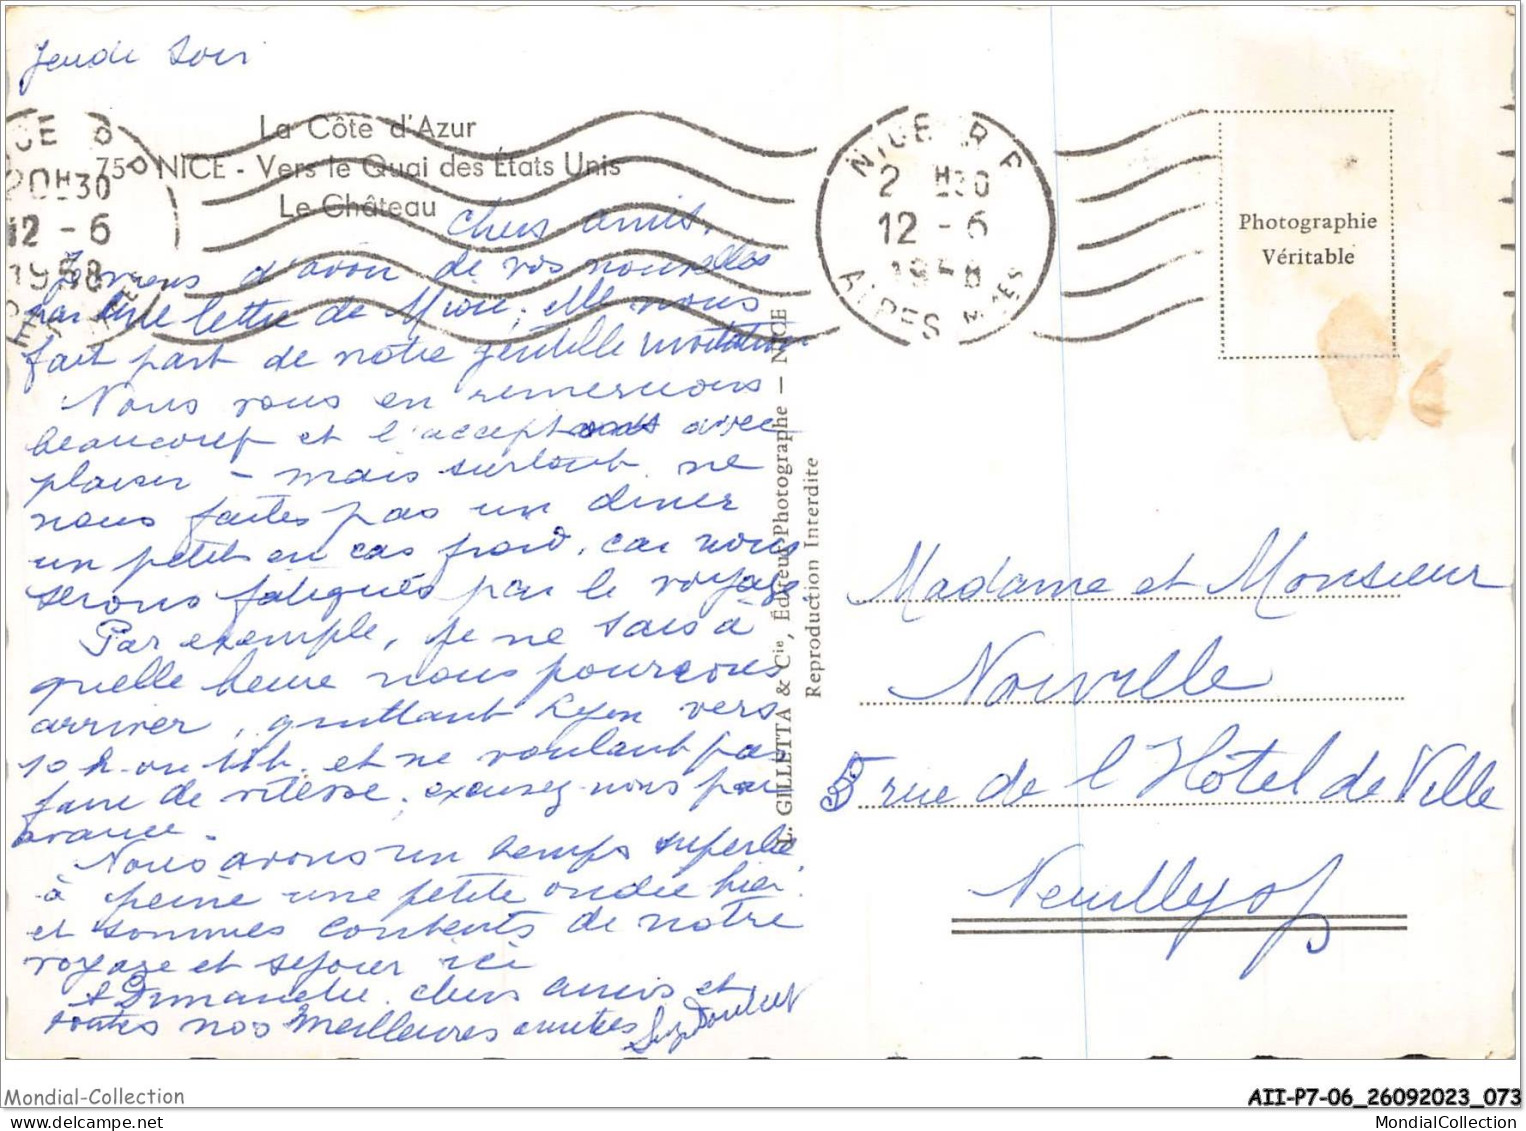 Jeudi Soir
La Côte d'Azur
75 - NICE - Vers le Quai des États Unis
Le Château
NICE R P
20H30
12 - 6
1958
ALPES MMES
NICE R P
2 H30
12 - 6
1958
ALPES MMES
Photographie
Véritable
Chers amis,
Je viens d'avoir de vos nouvelles
par une lettre de ; elle nous
fait part de votre gentille invitation
Nous vous en remercions
beaucoup et l'acceptons avec
plaisir - mais surtout ne
nous faites pas un diner
un petit en cas froid, car nous
serons fatigués par le voyage.
Par exemple, je ne sais à
quelle heure nous pourrons
arriver, quittant Lyon vers
10 h. ou 11 h. et ne voulant pas
faire de vitesse, excusez-nous par
avance.
Nous avons un temps superbe
à peine une petite ondée hier.
et sommes contents de notre
voyage et séjour ici
à Dimanche, chers amis et
toutes nos meilleures amitiés
L. GILLETTA & Cie, Éditeur-Photographe — NICE
Reproduction Interdite
Madame et Monsieur
Noiville
5 rue de l'Hôtel de Ville
Neuilly s/
Mondial-Collection
AII-P7-06_26092023_073
Mondial Collection
MondialCollection.com